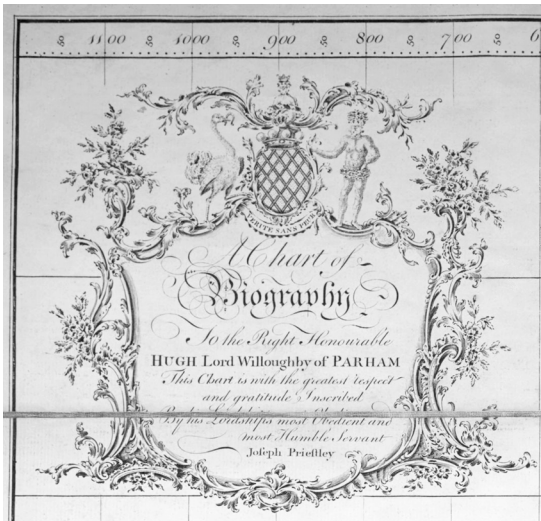 1100 1000 900 800 700 6
VERITE SANS PEUR
A Chart of
Biography
To the Right Honourable
HUGH Lord Willoughby of PARHAM
This Chart is with the greatest respect
and gratitude Inscribed
By his Lordships most Obedient and
most Humble Servant
Joseph Priestley